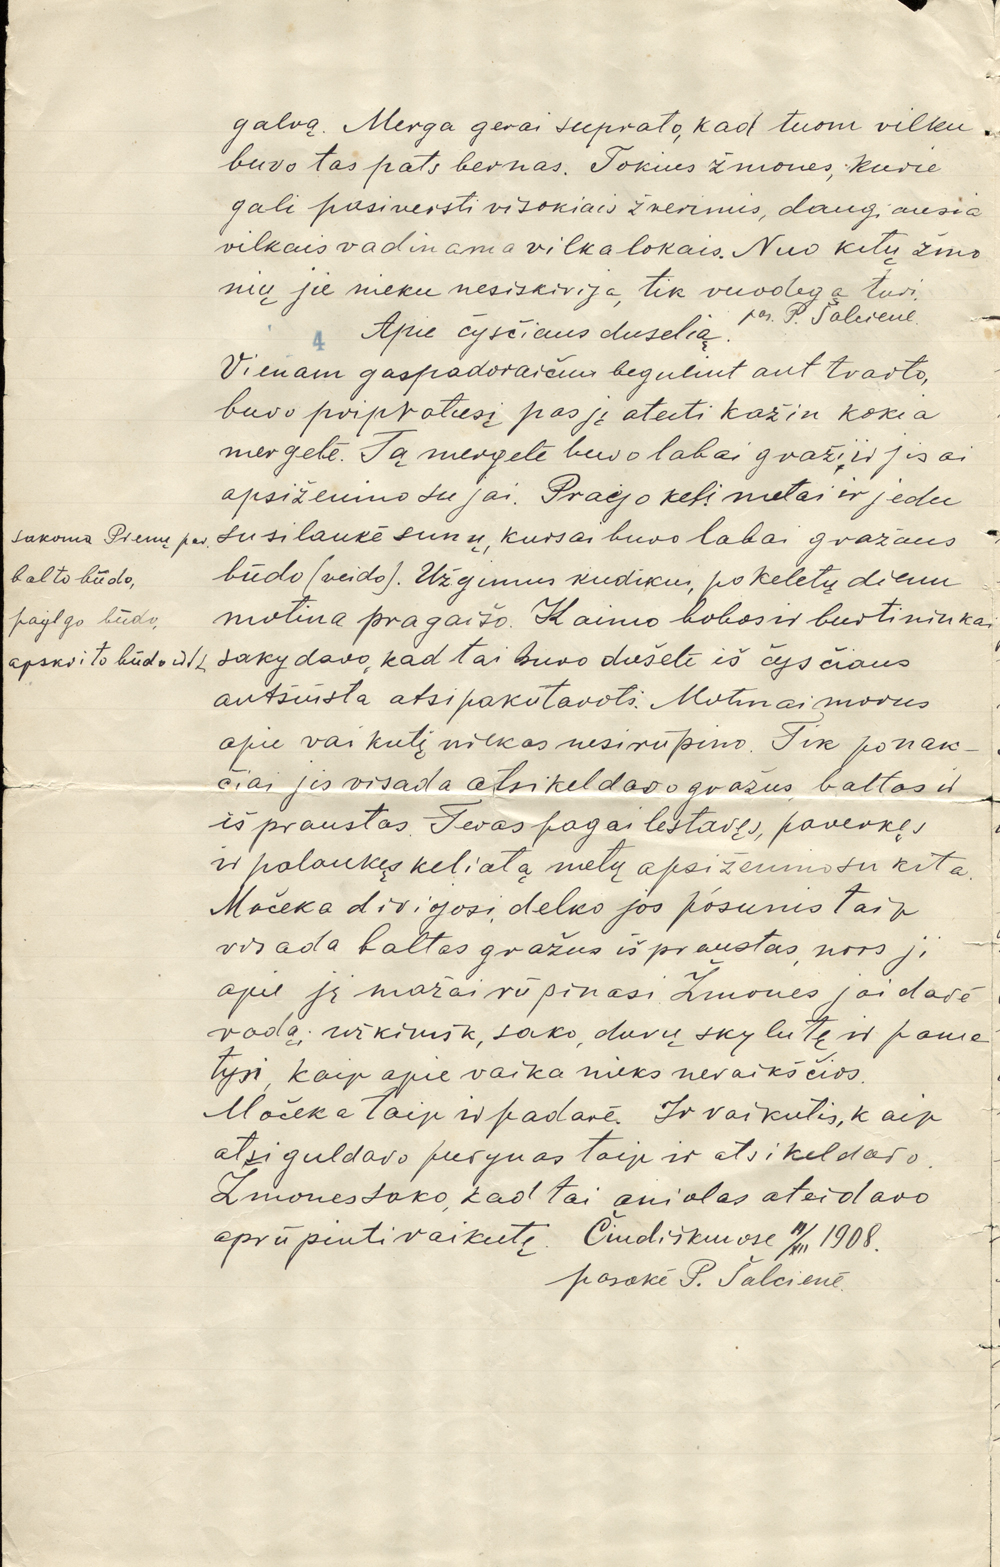 galvą. Merga gerai suprato, kad tuom vilku
buvo tas pats bernas. Tokius žmones, kurie
gali pasiversti visokiais žverimis, daugiausia
vilkais vadinama vilkalokais. Nuo kitų žmo
nių jie nieku nesiskirija, tik vuodegą turi.
pas. P. Šalcienė
4 Apie čysčiaus duselią.
Vienam gaspadoraičiui begulint ant tvarto,
buvo pripratusi pas jį ateiti kažin kokia
mergelė. Tą mergelė buvo labai graži, ir jis ai
apsiženino su jai. Praėjo keli metai ir jedu
susilaukė sunų, kursai buvo labai gražaus
būdo (veido). Užgimus kudikui, po keletų dienu
motina pragaišo. Kaimo bobos ir burtininkai
sakoma Prienų par.
balto būdo,
pailgo būdo,
apskrito būdo ir tt.
sakydavo, kad tai buvo dušelė iš čysčiaus
antsiųsta atsipakutavoti. Motinai mirus
apie vaikutį niekas nesirūpino. Tik po nak-
čiai jis visada atsikeldavo gražus, baltas ir
iš praustas. Tevas pagailestavęs, paverkęs
ir palaukęs keliatą metų apsiženino su kita.
Močeka divijosi, delko jos pósunis taip
visada baltas gražus iš praustas, nors ji
apie jį mažai rūpinasi. Žmones jai davė
rodą: užkimšk, sako, durų skylutę ir pama
tysi, kaip apie vaika nieks nevaikščios.
Močeka taip ir padarė. Ir vaikutis, kaip
atsiguldavo purvynas taip ir atsikeldavo.
Žmones sako, kad tai aniolas ateidavo
aprūpinti vaikutę. Čiudiškiuose 1908.
pasakė P. Šalcienė.